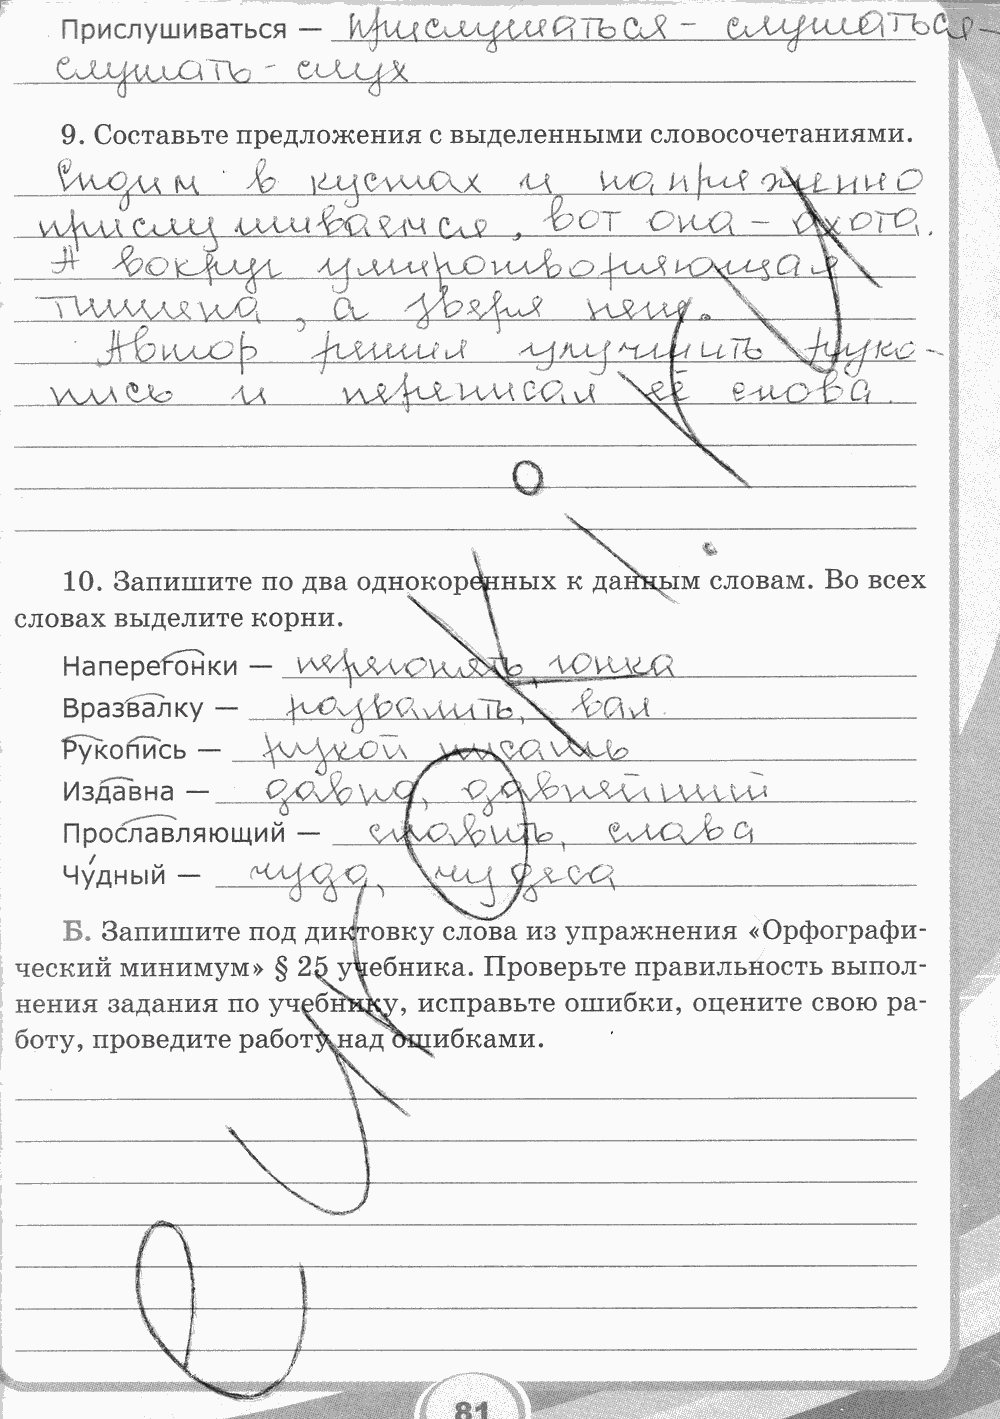 Прислушиваться — прислушаться - слушаться -
слушать - слух
9. Составьте предложения с выделенными словосочетаниями.
Сидим в кустах и напряженно
прислушиваемся, вот она - охота.
А вокруг умиротворяющая
тишина, а зверя нет.
Автор решил улучшить руко-
пись и переписал её снова.
10. Запишите по два однокоренных к данным словам. Во всех
словах выделите корни.
Наперегонки — перегонять, гонка
Вразвалку — развалить, вал
Рукопись — рукой писать
Издавна — давно, давнейший
Прославляющий — славить, слава
Чу́дный — чудо, чудеса
Б. Запишите под диктовку слова из упражнения «Орфографи-
ческий минимум» § 25 учебника. Проверьте правильность выпол-
нения задания по учебнику, исправьте ошибки, оцените свою ра-
боту, проведите работу над ошибками.
81